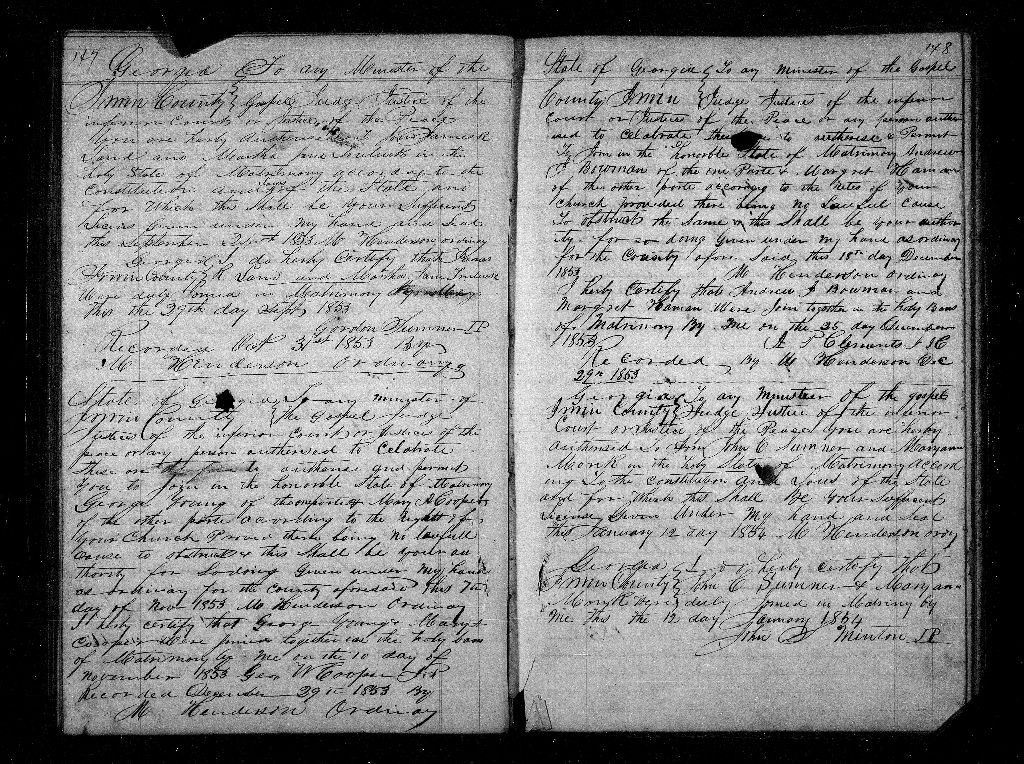 147
Georgia To any Minister of the
Irwin County Gospel Judge Justice of the
inferior County or Justice of the Peace
You are hereby authorised to Join
Land and Martha Jane in the
holy State of Matrimony according to the
Constitution and of the State and
for Which this Shall be Your Sufficient
Given under my hand and Seal
this September 1853 M Henderson ordinary
Georgia I do hereby Certify that
Irwin County Land and Martha Jane
Were duly Joined in Matrimony
This the 29th day Sept 1853
Gordon Sumner JP
Recorded Oct 31st 1853 By
M Henderson Ordinary
State of Georgia To any minister of
Irwin County the Gospel Judge
Justice of the inferior Court or Justice of the
peace or any person authorised to Celebrate
These are to authorise and permit
You to Join in the honorable State of Matrimony
George Young of the one part & Mary A Cooper
of the other parte according to the Rights of
your Church Provided there being no lawfull
Cause to obstruct & this Shall be your au
thority for So doing Given under my hand
as ordinary for the County aforesaid this 7th
day of Nov 1853 M Henderson Ordinary
I hereby certify that George Young & Mary A
Cooper Were joined together in the holy bans
of Matrimony by me on the 10 day of
November 1853 Geo W Cooper
Recorded December 29th 1853 By
M Henderson Ordinary
148
State of Georgia To any minister of the Gospel
County Irwin Judge Justices of the inferior
Court or Justices of the Peace or any person author
ised to Celebrate these to authorise & Permit
To Join in the honorable State of Matrimony Andrew
J Bowman of the one Parte & Margret Haman
of the other parte according to the Rites of Your
Church provided there being no Lawful Cause
To obstruct the Same & this Shall be your author
ity for so doing Given under my hand as ordinary
for the County afore Said this 18th day December
1853 M Henderson Ordinary
I hereby Certify that Andrew J Bowman and
Margret Haman Were Join together in the holy Bans
of Matrimony By Me on the 25 day December
1853 Clements
Recorded By M Henderson
29th 1853
Georgia To any minister of the gospel
Irwin County Judge Justice of the inferior
Court or Justice of the Peace You are hereby
authorised to Join John C Sumner and Maryann
Monk in the holy State of Matrimony Accord
ing to the constitution and Laws of the State
and for Which this Shall be Your Sufficient
Given Under My hand and Seal
this January 12 day 1854 M Henderson
Georgia I do hereby certify that
Irwin County John C Sumner & Maryann
Monk Were duly Joined in Matrimony by
Me this the 12 day January 1854
John Minton JP